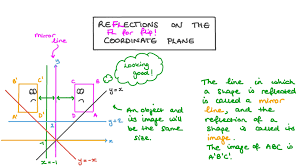 REFLECTIONS ON THE
FL for flip!
COORDINATE PLANE
mirror
line
Looking
good!
y
B' C' C B
A' D' D A
y=x
y=2
x
x=-1
y=-x
An object and
its image will
be the same
size.
The line in which
a shape is reflected
is called a mirror
line, and the
reflection of a
shape is called its
image.
The image of ABC is
A'B'C'.